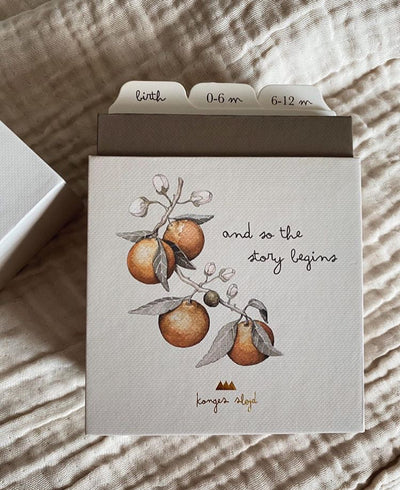 birth
0-6 m
6-12 m
and so the
story begins
konges sløjd